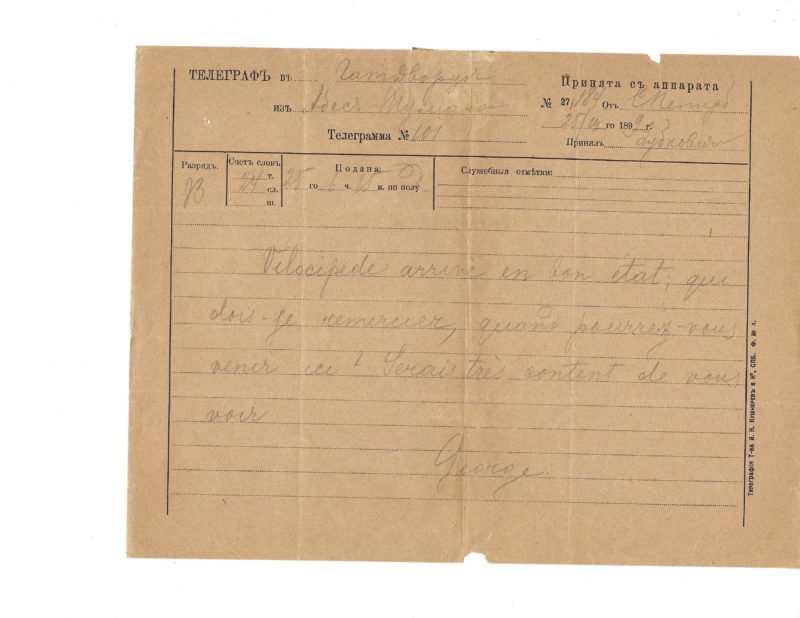 ТЕЛЕГРАФЪ въ
Принята съ аппарата
изъ Абасъ Тумана
№ 27/184 Отъ
Телеграмма № 101
25/III го 189 г.
Принялъ
Разрядъ. Счетъ словъ Подана: Служебныя отмѣтки:
24 т. сл. ш. 25 го ч. м. по полу
Vélocipède arrivé en bon état, qui
dois-je remercier, quand pourrez-vous
venir ici? Serais très content de vous
voir
George.
Типографія Т-ва И. Н. Кушнеревъ и Кº, СПБ. Ф. № 4.